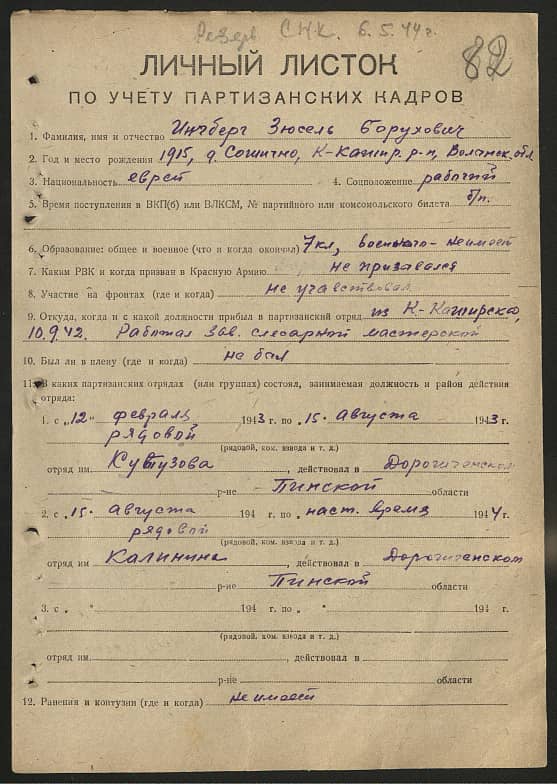 Резерв СНК. 6.5.44г.
82
ЛИЧНЫЙ ЛИСТОК
ПО УЧЕТУ ПАРТИЗАНСКИХ КАДРОВ
1. Фамилия, имя и отчество Ингберг Зюсель Борухович
2. Год и место рождения 1915, д. Сошично, К-Кашир. р-н, Волынск. обл
3. Национальность еврей 4. Соцположение рабочий
5. Время поступления в ВКП(б) или ВЛКСМ, № партийного или комсомольского билета б/п.
6. Образование: общее и военное (что и когда окончил) 7кл, военного- не имеет
7. Каким РВК и когда призван в Красную Армию не призывался
8. Участие на фронтах (где и когда) не участвовал
9. Откуда, когда и с какой должности прибыл в партизанский отряд из К-Каширска,
10.9.42. Работал зав. слесарной мастерской
10. Был ли в плену (где и когда) не был
11. В каких партизанских отрядах (или группах) состоял, занимаемая должность и район действия
отряда:
1. с „12" февраля 1943 г. по „15" Августа 1943 г.
рядовой
(рядовой, ком. взвода и т. д.)
отряд им Кутузова, действовал в Дорогиченском
р-не Пинской области
2. с „15" Августа 194 г. по „наст. время 1944 г.
рядовой
(рядовой, ком. взвода и т. д.)
отряд им Калинина, действовал в Дорогиченском
р-не Пинской области
3. с „ " 194 г. по „ " 194 г.
(рядовой, ком. взвода и т. д.)
отряд им. , действовал в
р-не области
12. Ранения и контузии (где и когда) не имеет